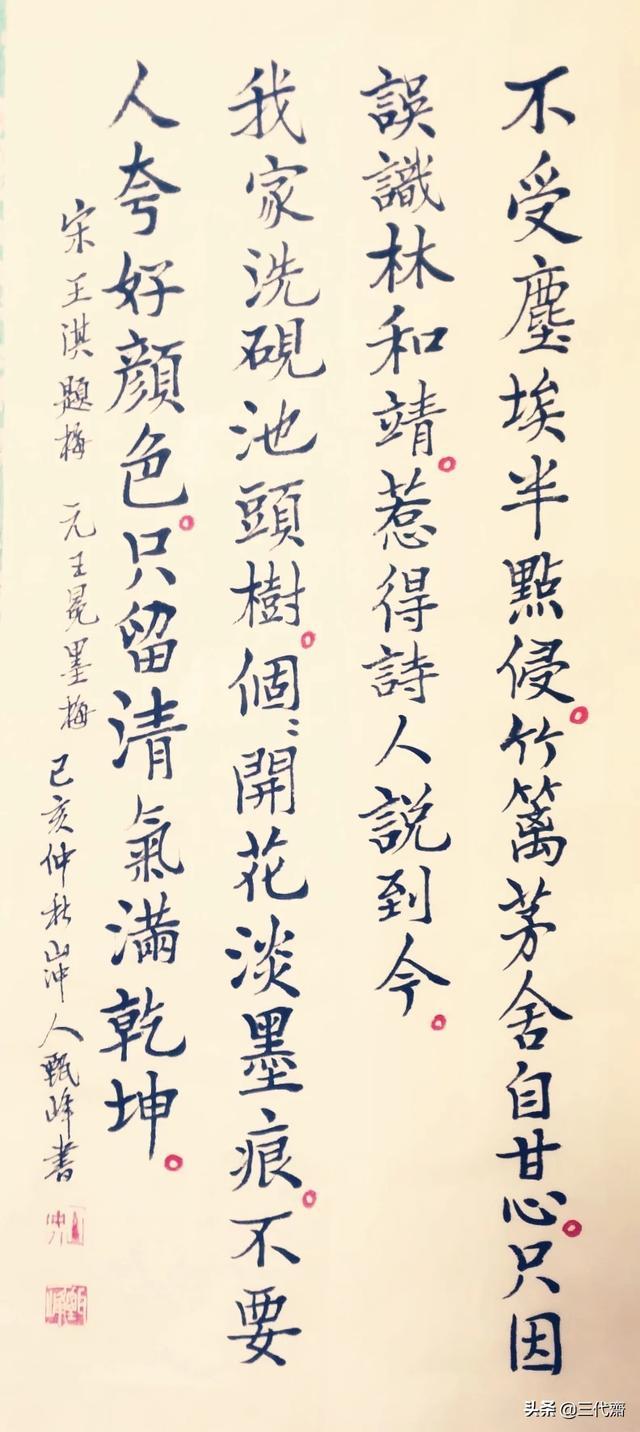 不受塵埃半點侵。竹篱茅舍自甘心。只因
誤識林和靖。惹得詩人說到今。
我家洗硯池頭樹。個〻開花淡墨痕。不要
人夸好顔色。只留清氣滿乾坤。
宋王淇題梅 元王冕墨梅 己亥仲秋山沖人甄峰書
头条 @三代齋